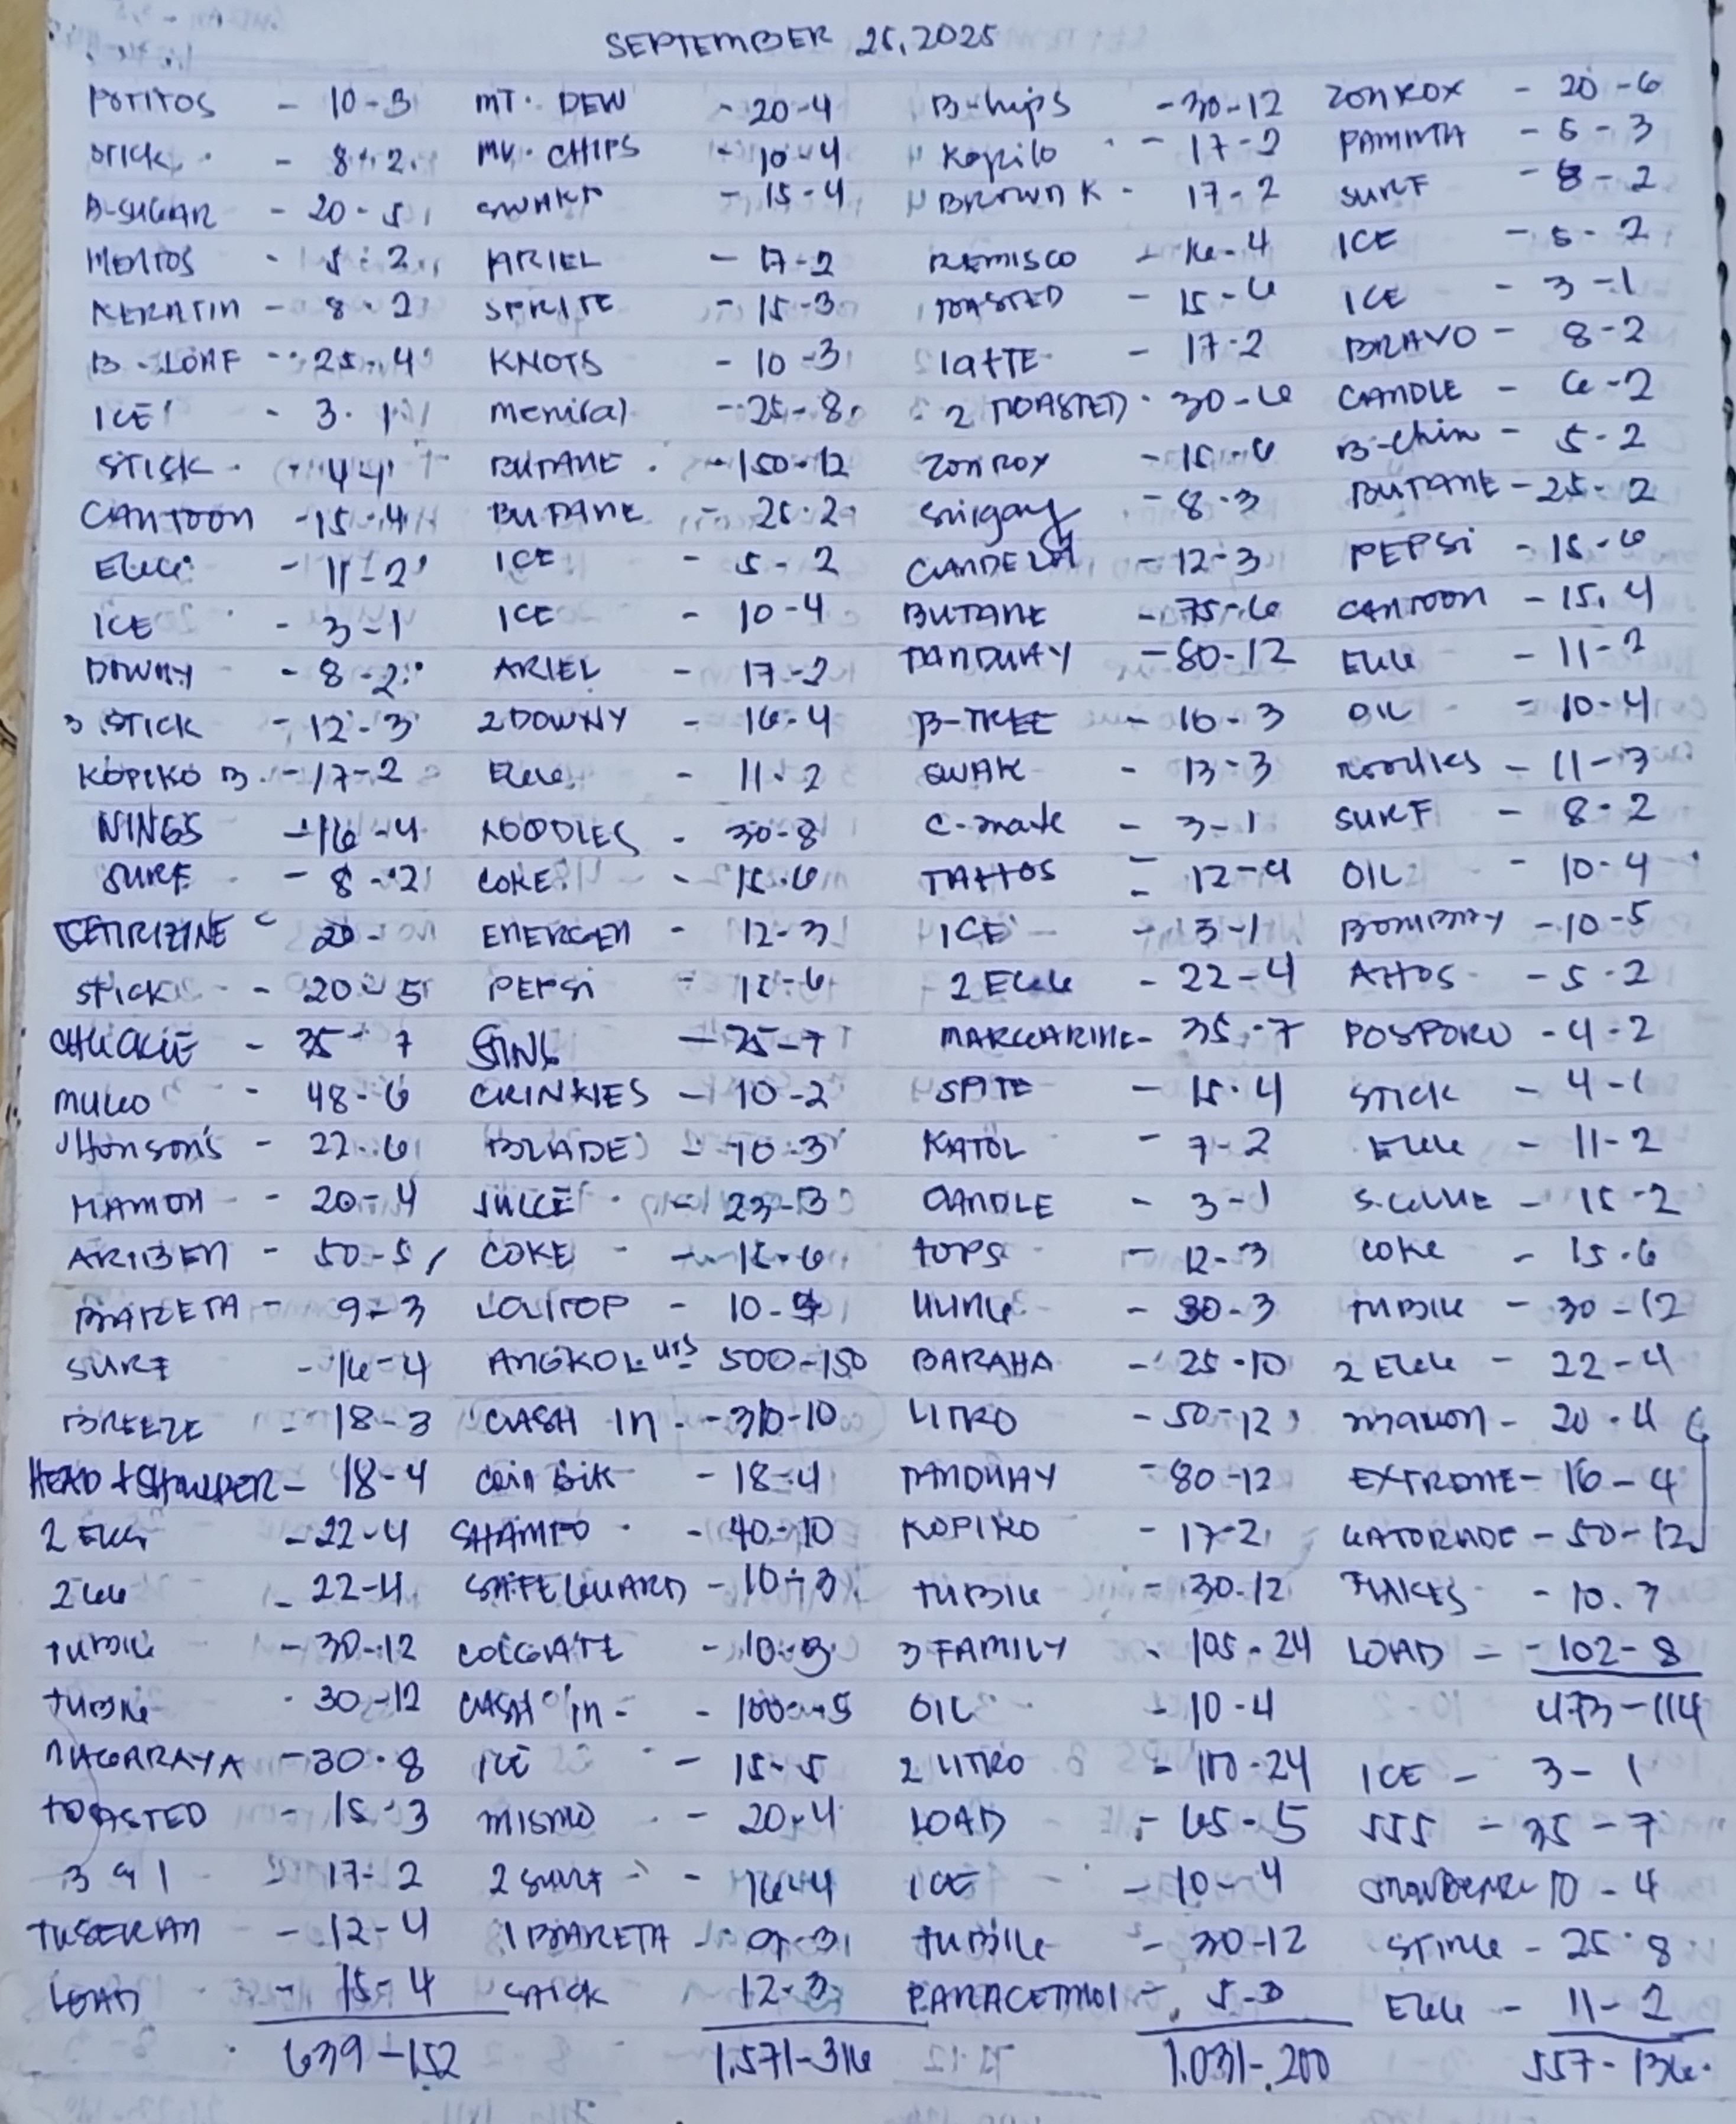 SEPTEMBER 25, 2025
POTITOS - 10-3
STICK - 8-2
B-SUGAR - 20-5
MENTOS - 5-2
KERATIN - 8-2
B-LOAF - 25-4
ICE - 3-1
STICK - 4-1
CANTOON - 15-4
EGG - 11-2
ICE - 3-1
DOWNY - 8-2
3 STICK - 12-3
KOPIKO B - 17-2
NINGS - 16-4
SURF - 8-2
CETIRIZINE - 20-
STICK - 20-5
CHUCKIE - 35-7
48-6
JHONSON'S - 22-6
MAMON - 20-4
50-5
BARETA - 9-3
SURF - 16-4
BREEZE - 18-3
HEAD + SHOULDER - 18-4
2 EGG - 22-4
2 GG - 22-4
TUBIG - 30-12
TUBIG - 30-12
NAGARAYA - 30-8
TOASTED - 15-3
3 n 1 - 17-2
12-4
LOAD - 15-4
639-152
MT. DEW - 20-4
MR. CHIPS - 10-4
SWAKP - 15-4
ARIEL - 17-2
SPRITE - 15-3
KNOTS - 10-3
- 25-8
BUTANE - 150-12
BUTANE - 25-2
ICE - 5-2
ICE - 10-4
ARIEL - 17-2
2 DOWNY - 16-4
EGG - 11-2
NOODLES - 30-8
COKE - 15-6
ENERGEN - 12-3
PEPSI - 15-6
STING - 25-7
CRINKIES - 10-2
BLADE - 10-3
JUICE - 23-3
COKE - 15-6
LOLITOP - 10-4
ANGKOL - 500-150
CASH IN - 310-10
- 18-4
SHAMPO - 40-10
SAFEGUARD - 10-3
COLGATE - 10-3
CASH IN - 100-5
ICE - 15-5
MISMO - 20-4
2 SURF - 16-4
1 BARETA - 9-3
STICK 12-3
1,571-316
B-hips - 30-12
Kopiko - 17-2
BROWN K - 17-2
REMISCO - 16-4
TOASTED - 15-6
latte - 17-2
2 TOASTED - 30-6
ZONROX - 15-6
Sinigang - 8-3
CANDELA - 12-3
BUTANE - 75-6
TANDUAY - 80-12
B-TREE - 10-3
SWAK - 13-3
C-mate - 3-1
TATTOS - 12-4
ICE - 3-1
2 EGG - 22-4
MARGARINE - 35-7
SPITE - 15-4
KATOL - 7-2
CANDLE - 3-1
TOPS - 12-3
- 30-3
BARAHA - 25-10
LITRO - 50-12
TANDUAY - 80-12
KOPIKO - 17-2
TUBIG - 30-12
3 FAMILY - 105-24
OIL - 10-4
2 LITRO - 100-24
LOAD - 65-5
ICE - 10-4
TUBIG - 30-12
PARACETMOl - 5-3
1,031-200
ZONROX - 20-6
PAMINTA - 5-3
SURF - 8-2
ICE - 5-2
ICE - 3-1
BRAVO - 8-2
CANDLE - 6-2
B-Chin - 5-2
BUTANE - 25-2
PEPSI - 15-6
CANTOON - 15-4
EGG - 11-2
OIL - 10-4
noodles - 11-3
SURF - 8-2
OIL - 10-4
BOMBAY - 10-5
ATTOS - 5-2
POSPORO - 4-2
STICK - 4-1
EGG - 11-2
S.GLUE - 15-2
COKE - 15-6
TUBIG - 30-12
2 EGG - 22-4
mamon - 20-4
EXTROME - 10-4
GATORADE - 50-12
FLAKES - 10-3
LOAD - 102-8
473-114
ICE - 3-1
555 - 35-7
10-4
STING - 25-8
EGG - 11-2
557-136